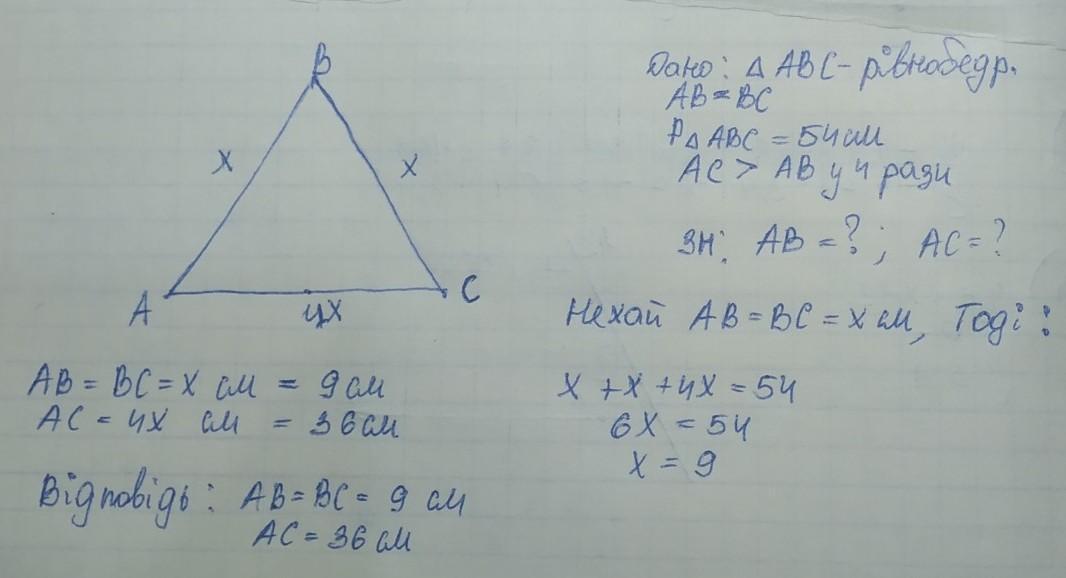 B
x
x
A
4x
C
Дано: △ ABC - рівнобедр.
AB = BC
P△ABC = 54 см
AC > AB у 4 рази
Зн: AB = ?; AC = ?
Нехай AB = BC = x см, Тоді:
x + x + 4x = 54
6x = 54
x = 9
AB = BC = x см = 9 см
AC = 4x см = 36 см
Відповідь: AB = BC = 9 см
AC = 36 см